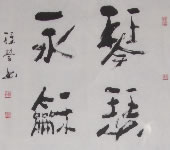 琴瑟
永龢